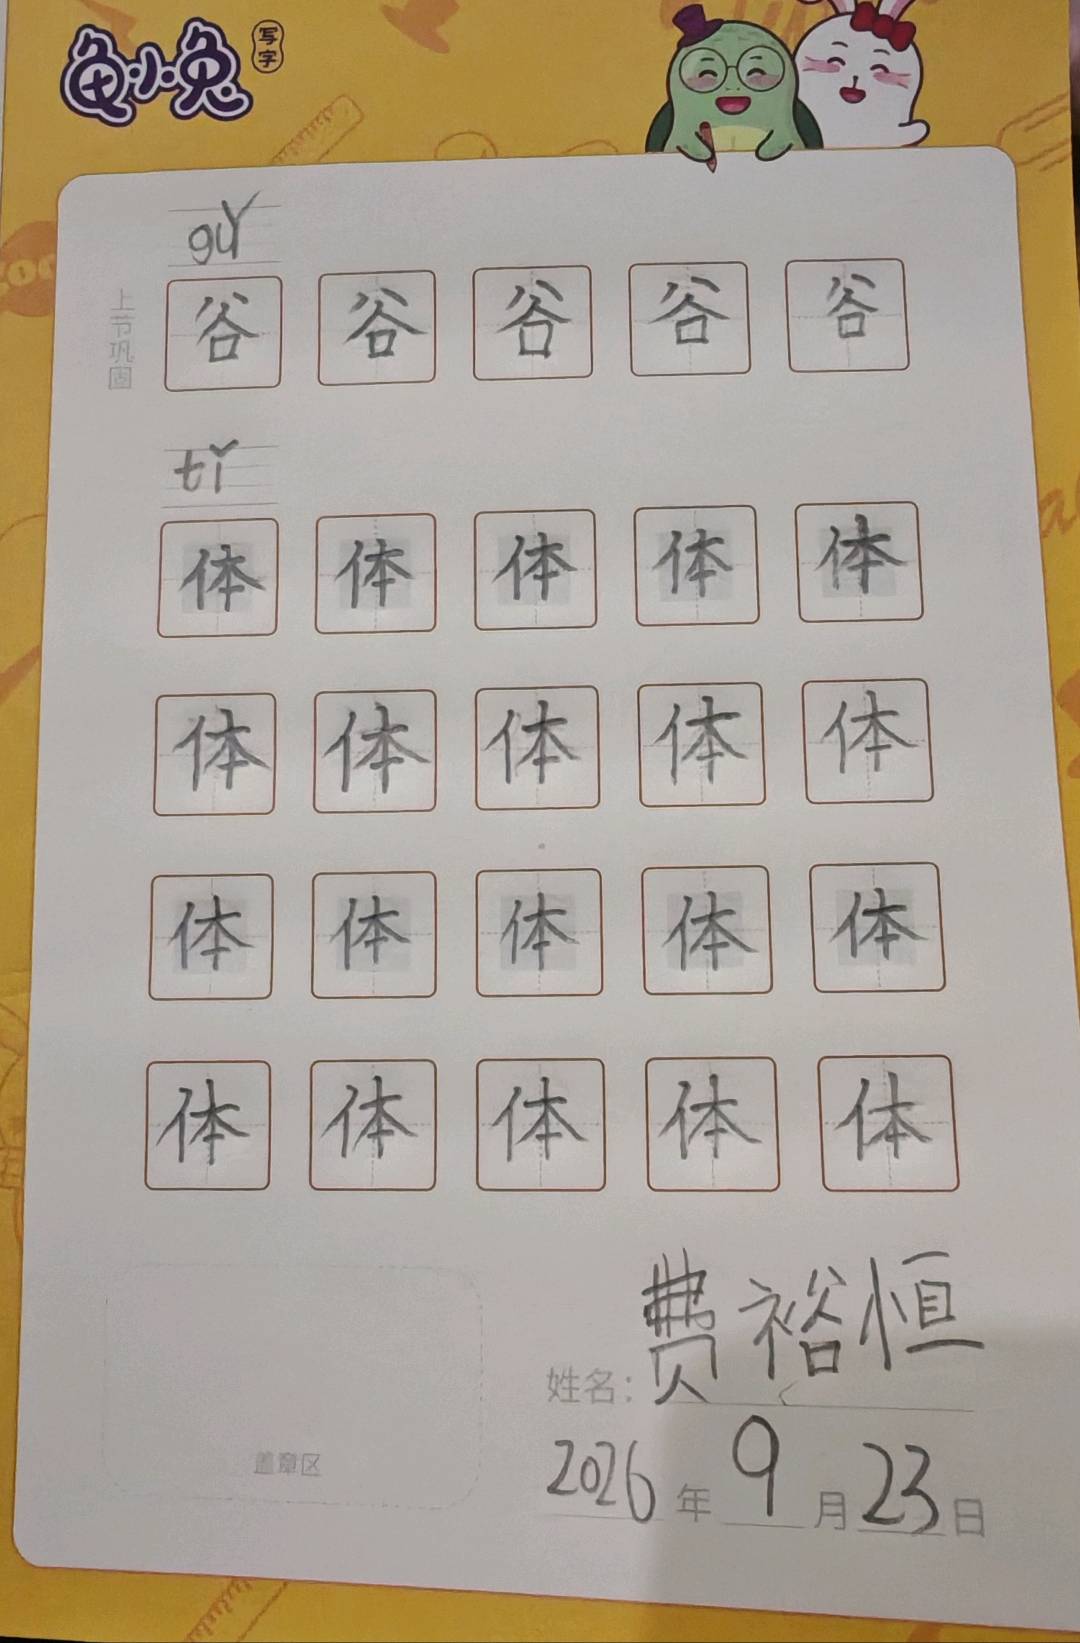 龟小兔 写字
gǔ
上节巩固
谷 谷 谷 谷 谷
tǐ
体 体 体 体 体
体 体 体 体 体
体 体 体 体 体
体 体 体 体 体
姓名：费裕恒
盖章区
2026年9月23日